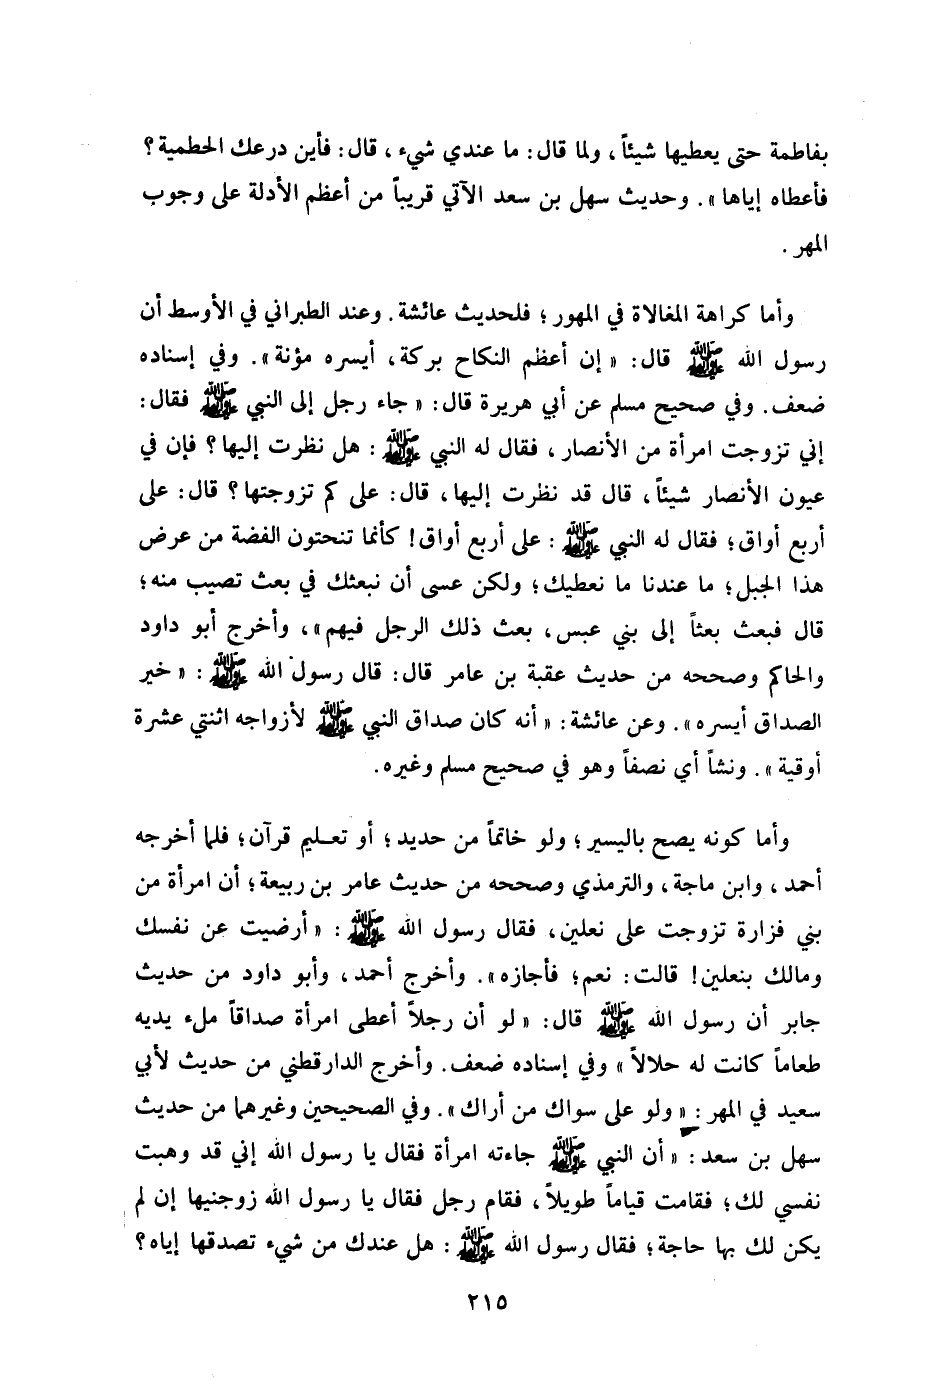 بفاطمة حتى يعطيها شيئاً، ولما قال: ما عندي شيء، قال: فأين درعك الحطمية؟
فأعطاه إياها». وحديث سهل بن سعد الآتي قريباً من أعظم الأدلة على وجوب
المهر.
وأما كراهة المغالاة في المهور؛ فلحديث عائشة. وعند الطبراني في الأوسط أن
رسول الله ﷺ قال: «إن أعظم النكاح بركة، أيسره مؤنة». وفي إسناده
ضعف. وفي صحيح مسلم عن أبي هريرة قال: «جاء رجل إلى النبي ﷺ فقال:
إني تزوجت امرأة من الأنصار، فقال له النبي ﷺ: هل نظرت إليها؟ فإن في
عيون الأنصار شيئاً، قال قد نظرت إليها، قال: على كم تزوجتها؟ قال: على
أربع أواق؛ فقال له النبي ﷺ: على أربع أواق! كأنما تنحتون الفضة من عرض
هذا الجبل؛ ما عندنا ما نعطيك؛ ولكن عسى أن نبعثك في بعث تصيب منه؛
قال فبعث بعثاً إلى بني عبس، بعث ذلك الرجل فيهم»، وأخرج أبو داود
والحاكم وصححه من حديث عقبة بن عامر قال: قال رسول الله ﷺ: «خير
الصداق أيسره». وعن عائشة: «أنه كان صداق النبي ﷺ لأزواجه اثنتي عشرة
أوقية». ونشاً أي نصفاً وهو في صحيح مسلم وغيره.
وأما كونه يصح باليسير؛ ولو خاتماً من حديد؛ أو تعليم قرآن؛ فلما أخرجه
أحمد، وابن ماجة، والترمذي وصححه من حديث عامر بن ربيعة؛ أن امرأة من
بني فزارة تزوجت على نعلين، فقال رسول الله ﷺ: «أرضيت عن نفسك
ومالك بنعلين! قالت: نعم؛ فأجازه». وأخرج أحمد، وأبو داود من حديث
جابر أن رسول الله ﷺ قال: «لو أن رجلاً أعطى امرأة صداقاً ملء يديه
طعاماً كانت له حلالاً» وفي إسناده ضعف. وأخرج الدارقطني من حديث لأبي
سعيد في المهر: «ولو على سواك من أراك». وفي الصحيحين وغيرهما من حديث
سهل بن سعد: «أن النبي ﷺ جاءته امرأة فقال يا رسول الله إني قد وهبت
نفسي لك؛ فقامت قياماً طويلاً، فقام رجل فقال يا رسول الله زوجنيها إن لم
يكن لك بها حاجة؛ فقال رسول الله ﷺ: هل عندك من شيء تصدقها إياه؟
٢١٥